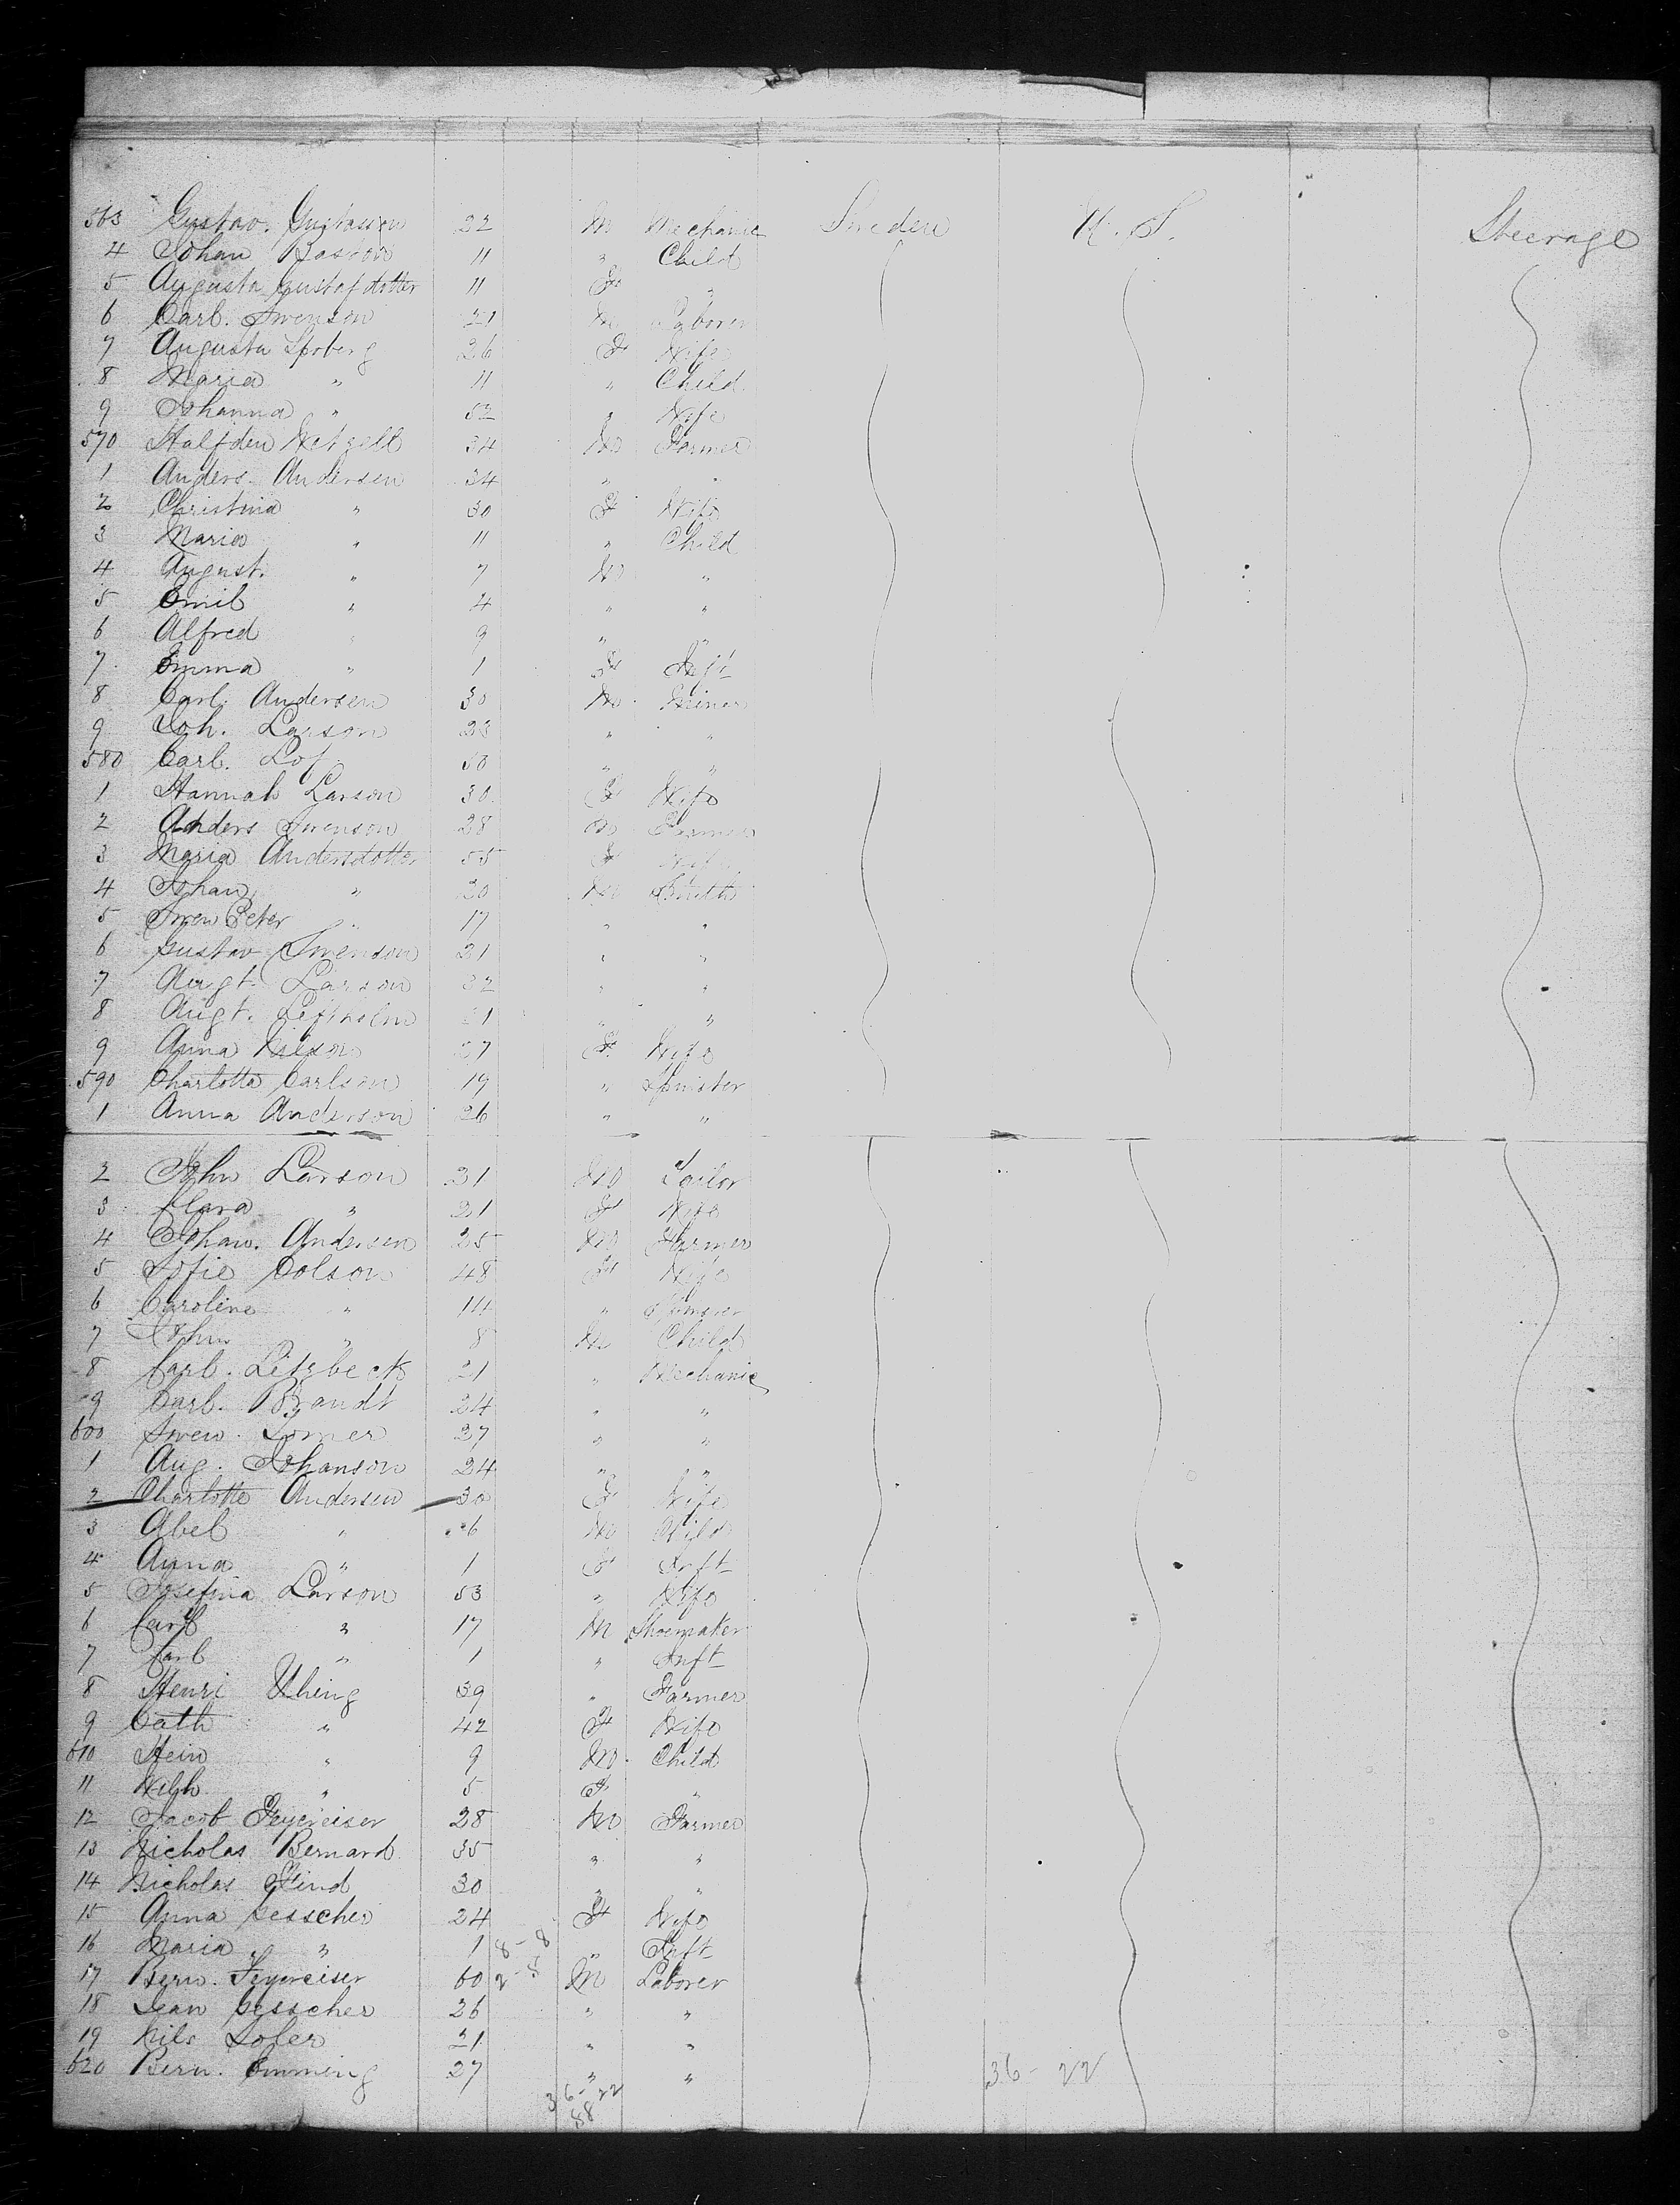 563 Gustav. Gustasson 22 M Mechanic Sweden U. S. Steerage
4 Johan 11 " Child
5 Augusta Gustafdotter 11 F "
6 Carl. Swenson 21 M Laborer
7 Augusta Sjoberg 26 F Wife
8 Maria " 11 " Child
9 Johanna " 52 " Wife
570 Halfden Wetzell 34 M Farmer
1 Anders. Andersen 34 " "
2 Christina " 30 F Wife
3 Maria " 11 " Child
4 August. " 7 M "
5 Emil " 4 " "
6 Alfred " 9 " "
7 Emma " 1 F Inft
8 Carl. Andersen 30 M Miner
9 Joh. Larson 23 " "
580 Carl. Lof 50 " "
1 Hannah Larson 30 F Wife
2 Anders Swenson 28 M Farmer
3 Maria Andersdotter 55 F Wife
4 Johan " 20 M Smith
5 Swen Peter " 17 " "
6 Gustav Swenson 21 " "
7 Augt. Larson 32 " "
8 Augt. 21 " "
9 Anna Nilson 27 F Wife
590 Charlotta Carlson 19 " Spinster
1 Anna Anderson 26 " "
2 John Larson 31 M Tailor
3 Clara " 21 F Wife
4 Johan. Andersen 25 M Farmer
5 Sofie Colson 48 F Wife
6 Caroline " 14 "
7 John " 8 M Child
8 Carl. Litsbeck 21 " Mechanic
9 Carl. Brandt 24 " "
600 Swen. Lomer 27 " "
1 Aug. Johanson 24 " "
2 Charlotte Andersen 30 F Wife
3 Abel " 6 M Child
4 Anna " 1 F Inft
5 Josefina Larson 53 " Wife
6 Carl " 17 M Shoemaker
7 Carl " 1 " Inft
8 Henri Uhing 39 " Farmer
9 Cath " 42 F Wife
610 Hein " 9 M. Child
11 Wilh " 5 F "
12 Jacob Feyereiser 28 M Farmer
13 Nicholas Bernard 35 " "
14 Nicholas Find 30 " "
15 Anna Gesscher 24 F Wife
16 Maria " 1 8-8 " Inft
17 Bern. Feyereiser 60 2-5 M Laborer
18 Jean Gesscher 26 " "
19 Nils Lofer 21 " "
620 Bern. Emming 27 " " 36-22
36-22
58